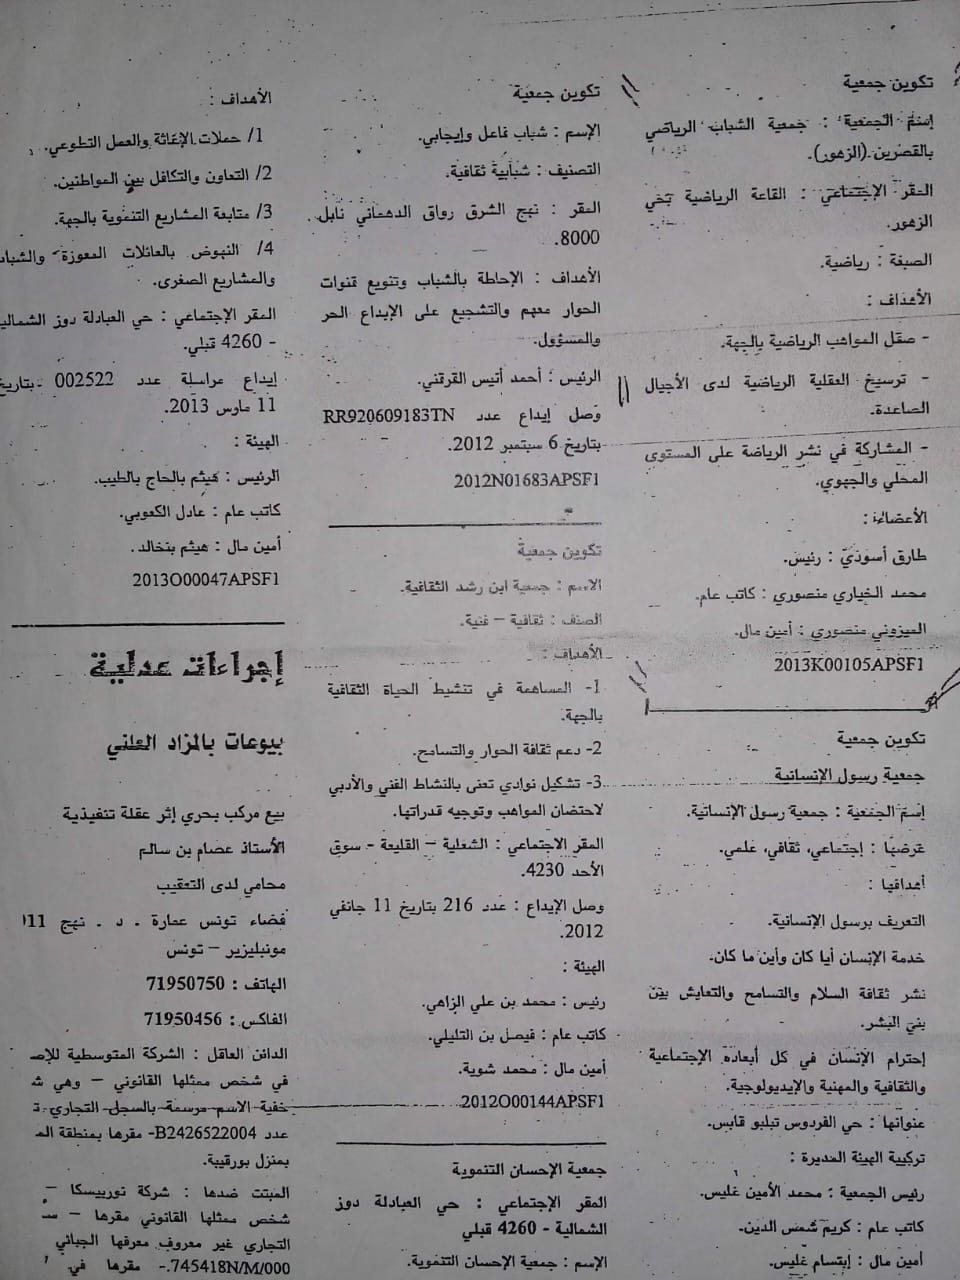 تكوين جمعية
إسم الجمعية : جمعية الشباب الرياضي
بالقصرين (الزهور).
المقر الإجتماعي : القاعة الرياضية بحي
الزهور.
الصبغة : رياضية.
الأهداف :
- صقل المواهب الرياضية بالجهة.
- ترسيخ العقلية الرياضية لدى الأجيال
الصاعدة.
- المشاركة في نشر الرياضة على المستوى
المحلي والجهوي.
الأعضاء :
طارق أسودي : رئيس.
محمد الخياري منصوري : كاتب عام.
الميزوني منصوري : أمين مال.
2013K00105APSF1
تكوين جمعية
جمعية رسول الإنسانية
إسم الجمعية : جمعية رسول الإنسانية.
غرضها : إجتماعي، ثقافي، علمي.
أهدافها :
التعريف برسول الإنسانية.
خدمة الإنسان أيا كان وأين ما كان.
نشر ثقافة السلام والتسامح والتعايش بين
بني البشر.
إحترام الإنسان في كل أبعاده الإجتماعية
والثقافية والمهنية والإيديولوجية.
عنوانها : حي الفردوس تبلبو قابس.
تركيبة الهيئة المديرة :
رئيس الجمعية : محمد الأمين غليس.
كاتب عام : كريم شمس الدين.
أمين مال : إبتسام غليس.
تكوين جمعية
الإسم : شباب فاعل وإيجابي.
التصنيف : شبابية ثقافية.
المقر : نهج الشرق رواق الدهماني نابل
8000.
الأهداف : الإحاطة بالشباب وتنويع قنوات
الحوار معهم والتشجيع على الإبداع الحر
والمسؤول.
الرئيس : أحمد أنيس القرقني.
وصل إيداع عدد RR920609183TN
بتاريخ 6 سبتمبر 2012.
2012N01683APSF1
تكوين جمعية
الاسم : جمعية ابن رشد الثقافية.
الصنف : ثقافية – فنية.
الأهداف :
1- المساهمة في تنشيط الحياة الثقافية
بالجهة.
2- دعم ثقافة الحوار والتسامح.
3- تشكيل نوادي تعنى بالنشاط الفني والأدبي
لاحتضان المواهب وتوجيه قدراتها.
المقر الاجتماعي : الشعلية – القليعة - سوق
الأحد 4230.
وصل الإيداع : عدد 216 بتاريخ 11 جانفي
2012.
الهيئة :
رئيس : محمد بن علي الزاهي.
كاتب عام : فيصل بن التليلي.
أمين مال : محمد شوية.
2012O00144APSF1
جمعية الإحسان التنموية
المقر الإجتماعي : حي العبادلة دوز
الشمالية - 4260 قبلي
الإسم : جمعية الإحسان التنموية.
الأهداف :
1/ حملات الإغاثة والعمل التطوعي.
2/ التعاون والتكافل بين المواطنين.
3/ متابعة المشاريع التنموية بالجهة.
4/ النهوض بالعائلات المعوزة والشباب
والمشاريع الصغرى.
المقر الإجتماعي : حي العبادلة دوز الشمالية
- 4260 قبلي.
إيداع مراسلة عدد 002522 بتاريخ
11 مارس 2013.
الهيئة :
الرئيس : هيثم بالحاج بالطيب.
كاتب عام : عادل الكعوبي.
أمين مال : هيثم بنخالد.
2013O00047APSF1
إجراءات عدلية
بيوعات بالمزاد العلني
بيع مركب بحري إثر عقلة تنفيذية
الأستاذ عصام بن سالم
محامي لدى التعقيب
فضاء تونس عمارة . د . نهج
مونبليزير – تونس
الهاتف : 71950750
الفاكس : 71950456
الدائن العاقل : الشركة المتوسطية
في شخص ممثلها القانوني – وهي
خفية الاسم مرسمة بالسجل التجاري
عدد B2426522004- مقرها بمنطقة
بمنزل بورقيبة.
المبتت ضدها : شركة نوربيسكا –
شخص ممثلها القانوني مقرها –
التجاري غير معروف معرفها الجبائي
745418N/M/000.- مقرها في